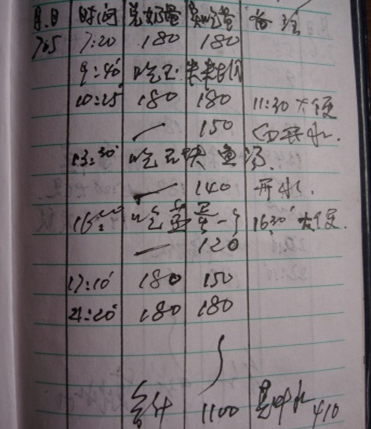 月.日 时间 兑奶量 实吃量 备注
7.5 7:20 180 180
9:40 吃玉米
10:25 180 180 11:30 大便
150 开水.
13:30 吃 鱼汤.
140 开水.
16:00 吃蛋 16:30 大便.
120
17:10 180 150
21:20 180 180
合计 1100 其中水 410